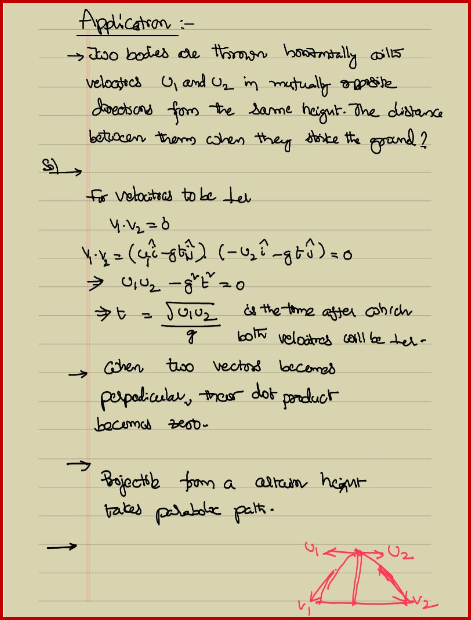 Application :-
→ Two bodies are thrown horizontally with
velocities U₁ and U₂ in mutually opposite
directions from the same height. The distance
between them when they strike the ground?
Sol →
For velocities to be ⊥er
V₁.V₂ = 0
V₁.V₂ = (u₁î - gtĵ). (-u₂î - gtĵ) = 0
⇒ U₁U₂ - g²t² = 0
⇒ t = √U₁U₂ / g is the time after which
both velocities will be ⊥er.
→ When two vectors becomes
perpendicular, their dot product
becomes zero.
→ Projectile from a certain height
takes parabolic path.
→
U₁ U₂
V₁ V₂